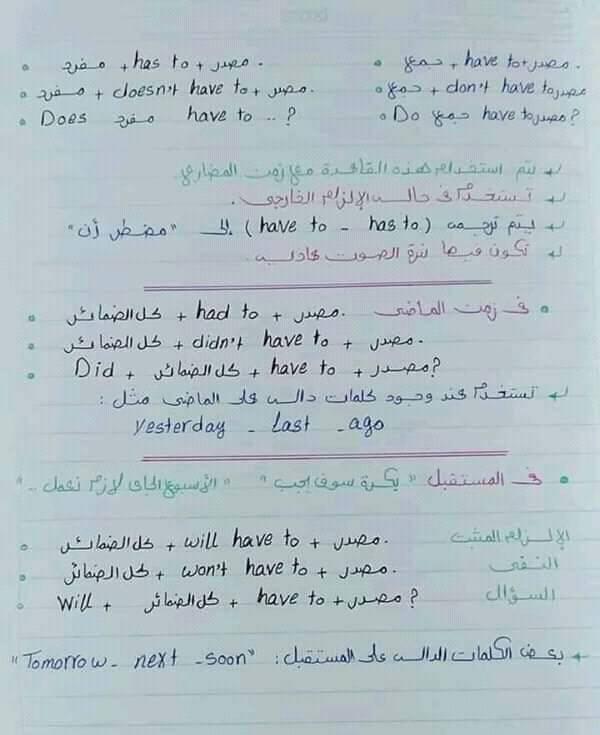 • مفرد + has to + مصدر. • جمع + have to + مصدر.
• مفرد + doesn't have to + مصدر. • جمع + don't have to مصدر
• Does مفرد have to .. ? • Do جمع have to مصدر?
↲ يتم استخدام هذه القاعدة مع زمن المضارع.
↲ تستخدم في حالة الإلزام الخارجي.
↲ يتم ترجمة (have to - has to) إلى "مضطر أن"
↲ تكون فيها نبرة الصوت هادئة.
• في زمن الماضي • كل الضمائر + had to + مصدر.
• كل الضمائر + didn't have to + مصدر.
• Did + كل الضمائر + have to + مصدر?
↲ تستخدم عند وجود كلمات دالة على الماضي مثل :
yesterday - Last - ago
• في المستقبل "بكرة سوف يجب" "الأسبوع الجاى لازم نعمل .."
الإلزام المثبت • كل الضمائر + will have to + مصدر.
النفي • كل الضمائر + won't have to + مصدر.
السؤال • Will + كل الضمائر + have to + مصدر ?
← بعض الكلمات الدالة على المستقبل: "Tomorrow - next - soon"